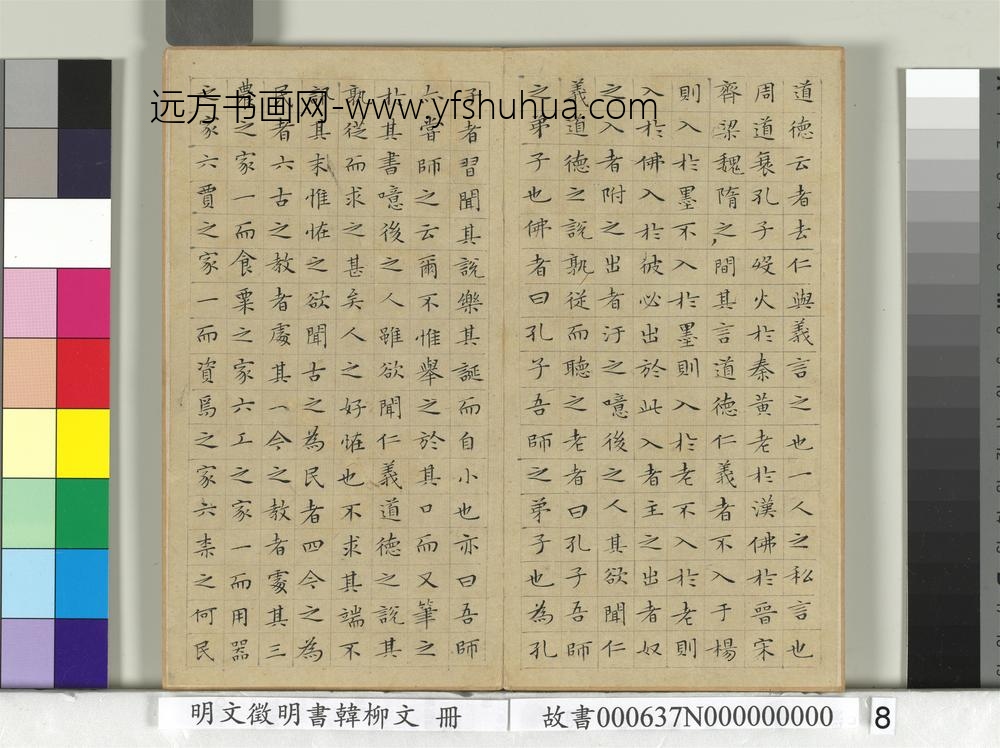 道德云者去仁與義言之也一人之私言也
周道衰孔子歿火於秦黃老於漢佛於晉宋
齊梁魏隋之間其言道德仁義者不入于楊
則入於墨不入於墨則入於老不入於老則
入於佛入於彼必出於此入者主之出者奴
之入者附之出者汙之噫後之人其欲聞仁
義道德之說孰從而聽之老者曰孔子吾師
之弟子也佛者曰孔子吾師之弟子也為孔
子者習聞其說樂其誕而自小也亦曰吾師
亦嘗師之云爾不惟舉之於其口而又筆之
於其書噫後之人雖欲聞仁義道德之說其
孰從而求之甚矣人之好恠也不求其端不
訊其末惟恠之欲聞古之為民者四今之為
民者六古之教者處其一今之教者處其三
農之家一而食粟之家六工之家一而用器
之家六賈之家一而資焉之家六柰之何民
远方书画网-www.yfshuhua.com
明文徵明書韓柳文 冊
故書000637N000000000
8